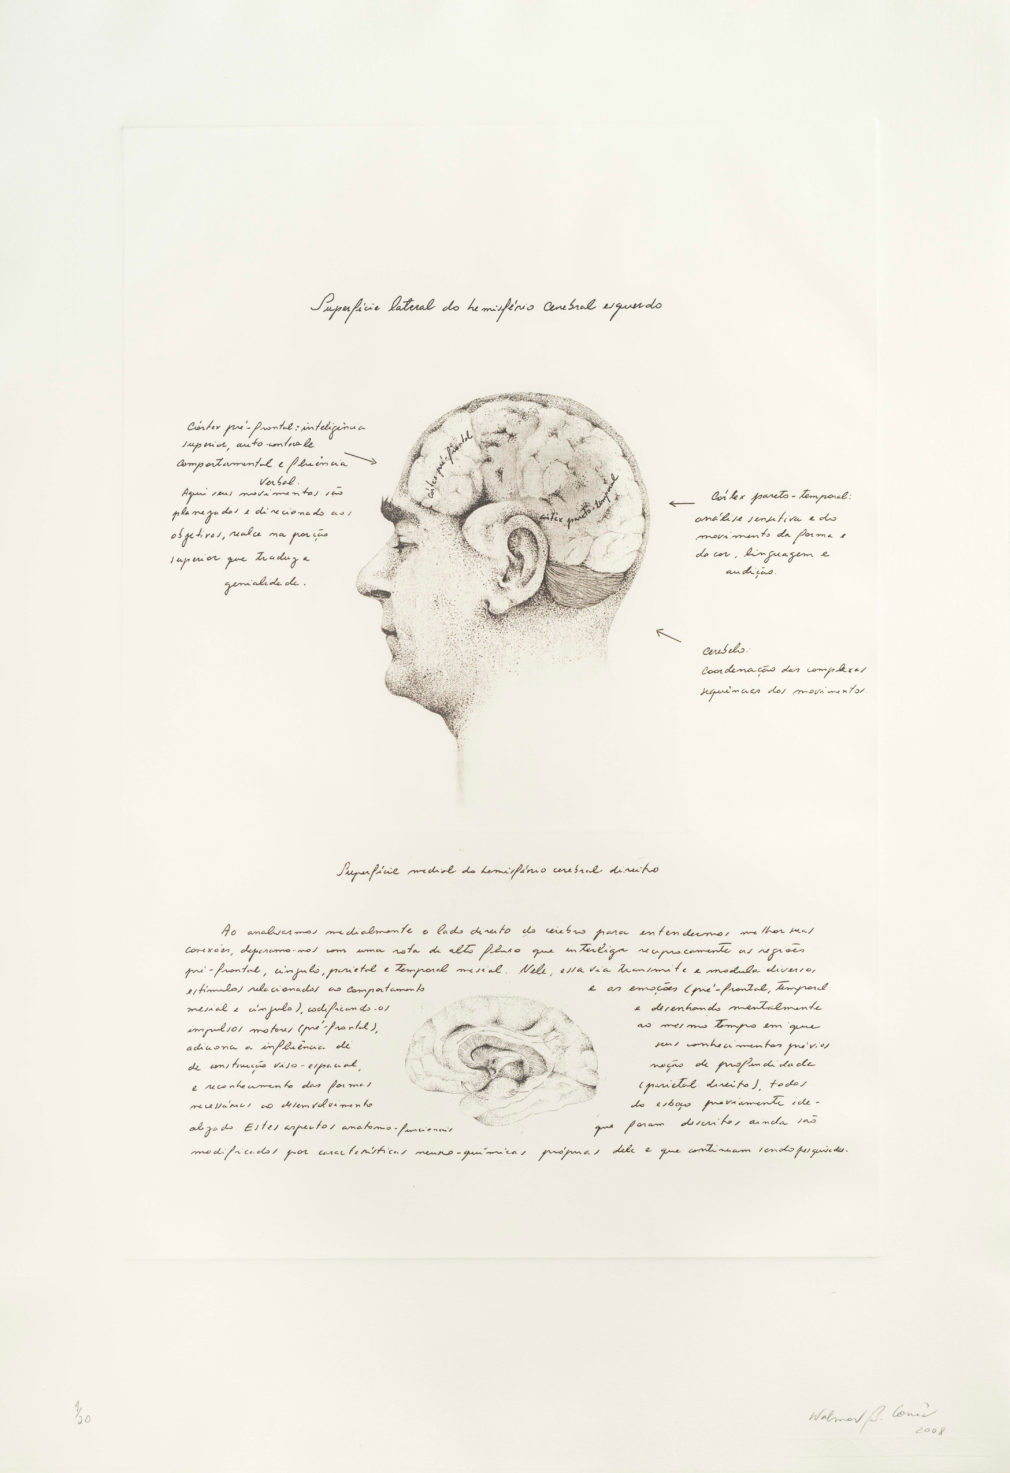 Superfície lateral do hemisfério cerebral esquerdo
Córtex pré-frontal: inteligência
superior, auto-controle
comportamental e fluência
verbal.
Aqui seus movimentos são
planegados e direcionado aos
objetivos, realce na porção
superior que traduz a
genialidade.
córtex pré-frontal
córtex parieto-temporal
Córtex parieto-temporal:
análise sensitiva e do
movimento da forma e
da cor, linguagem e
audição.
Cerebelo:
Coordenação das complexas
sequências dos movimentos.
Superfície medial do hemisfério cerebral direito
Ao analisarmos medialmente o lado direito do cérebro para entendermos melhor suas
conexões, deparamo-nos com uma rota de alto fluxo que interliga reciprocamente as regiões
pré-frontal, cíngulo, parietal e temporal mesial. Nele, essa via transmite e modula diversos
estímulos relacionados ao comportamento e as emoções (pré-frontal, temporal
mesial e cíngulo), codificando-os e desenhando mentalmente
impulsos motores (pré-frontal), ao mesmo tempo em que
adiciona a influência de seus conhecimentos prévios
de construção viso-espacial, noção de profundidade
e reconhecimento das formas (parietal direito), todos
necessários ao desenvolvimento do esboço previamente ide-
alizado Estes aspectos anatomo-funcionais que foram descritos ainda são
modificados por características neuro-químicas próprias dele e que continuam sendo pesquisadas.
/30
Walmor B. Corrêa
2008